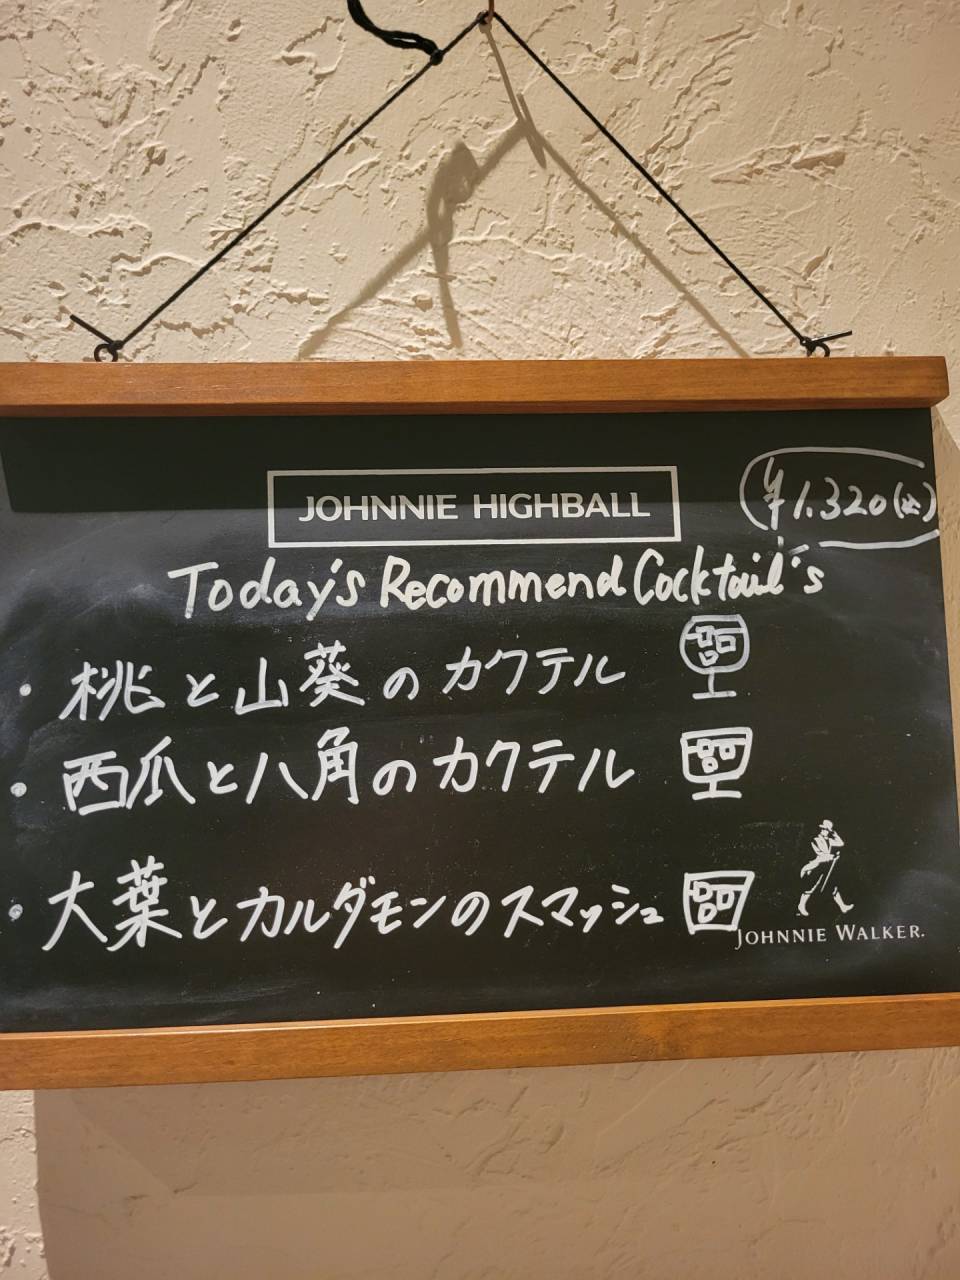 JOHNNIE HIGHBALL
¥1.320(込)
Today's Recommend Cocktail's
・桃と山葵のカクテル
・西瓜と八角のカクテル
・大葉とカルダモンのスマッシュ
JOHNNIE WALKER.